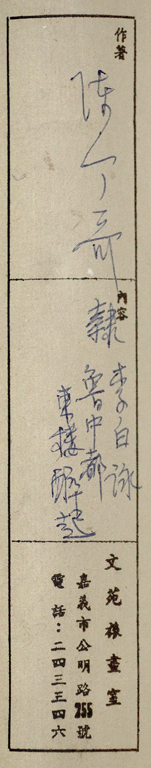 作著
陳丁奇
內容
隸
李白詠
魯中都
東樓醉起
文苑裱畫室
嘉義市公明路255號
電話：二四三三四六